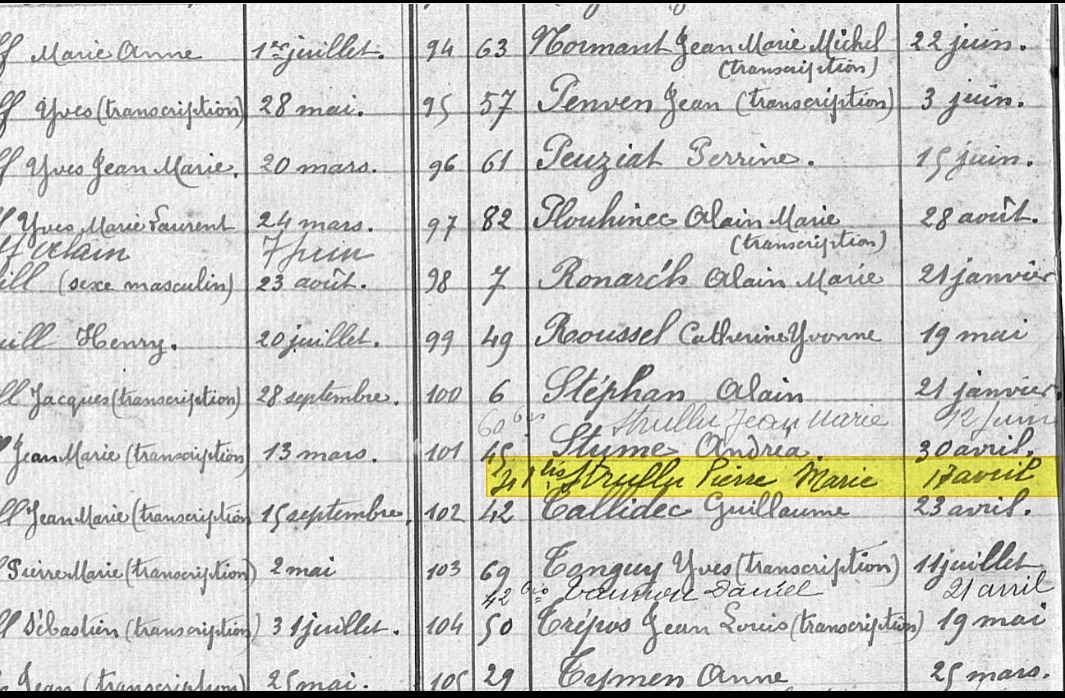 ff Marie Anne 1er juillet.
ff Yves (transcription) 28 mai.
ff Yves Jean Marie. 20 mars.
ff Yves Marie Laurent 24 mars.
ff Alain 7 juin
ill (sexe masculin) 23 août.
uill Henry. 20 juillet.
ll Jacques (transcription) 28 septembre.
ll Jean Marie (transcription) 13 mars.
ll Jean Marie (transcription) 15 septembre.
Pierre Marie (transcription) 2 mai
ll Sébastien (transcription) 31 juillet.
Jean (transcription) 25 mai.
94 63 Normant Jean Marie Michel 22 juin.
(transcription)
95 57 Penven Jean (transcription) 3 juin.
96 61 Peuziat Perrine. 15 juin.
97 82 Plouhinec Alain Marie 28 août.
(transcription)
98 7 Ronarc'h Alain Marie 21 janvier
99 49 Roussel Catherine Yvonne 19 mai
100 6 Stéphan Alain 21 janvier.
60 bis Strullu Jean Marie 12 juin
101 45 Styme Andréa. 30 avril.
41 bis Strullu Pierre Marie 17 avril
102 42 Tallidec Guillaume 23 avril.
103 69 Tanguy Yves (transcription) 11 juillet
42 bis Daniel 21 avril
104 50 Trépos Jean Louis (transcription) 19 mai
105 29 Tymen Anne 25 mars.